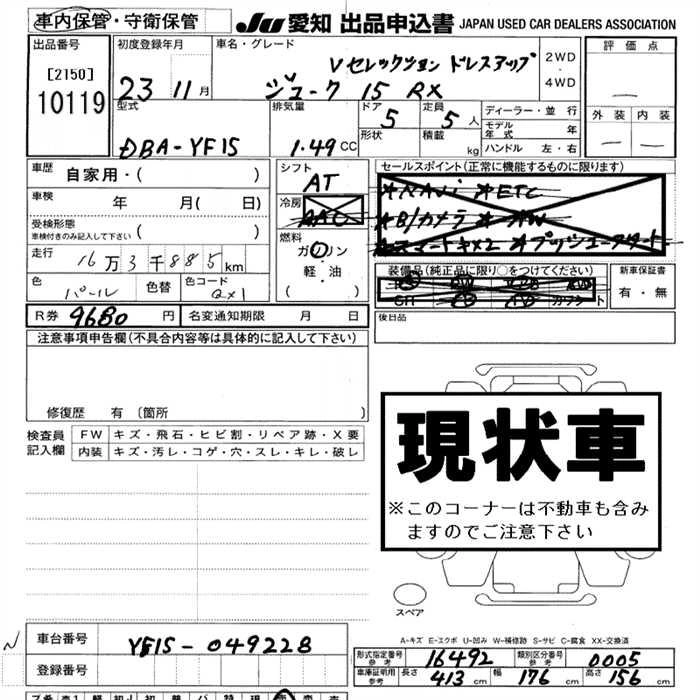 車内保管・守衛保管
JU 愛知 出品申込書 JAPAN USED CAR DEALERS ASSOCIATION
出品番号
[2150]
10119
初度登録年月
23 11月
車名・グレード
Vセレクション ドレスアップ
ジューク 15 RX
2WD
4WD
評価点
外装 内装
型式
DBA-YF15
排気量
1.49 CC
ドア
5
定員
5人
形状
積載
kg
ディーラー・並行
モデル年式 年
ハンドル 左・右
車歴 自家用・( )
車検 年 月( 日)
受検形態
車検付きのみ記入して下さい ( )
走行 16万3千885km
色 パール 色替 色コード QX1
シフト AT
冷房 AAC
燃料
ガソリン
軽・油
( )
セールスポイント(正常に機能するものに限ります)
*NAVi *ETC
*B/カメラ *AW
*スマートキx2 *プッシュスタート
装備品(純正品に限り○をつけてください)
新車保証書
有・無
後日品
R券 9680円 名変通知期限 月 日
注意事項申告欄(不具合内容等は具体的に記入して下さい)
修復歴 有 〔箇所 〕
検査員記入欄
FW キズ・飛石・ヒビ割・リペア跡・X要
内装 キズ・汚レ・コゲ・穴・スレ・キレ・破レ
現状車
※このコーナーは不動車も含み
ますのでご注意下さい
スペア
A-キズ E-エクボ U-凹み W-補修跡 S-サビ C-腐食 XX-交換済
N
車台番号 YF15-049228
登録番号
形式指定番号 参考 16492 類別区分番号 参考 0005
車庫証明用 参考 長さ 413cm 幅 176cm 高さ 156cm